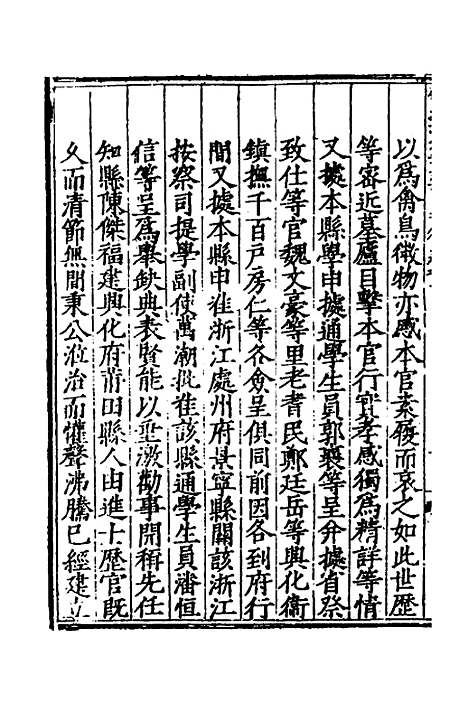 以爲禽鳥微物亦感本官素履而哀之如此世歷
等密近墓廬目擊本官行實孝感獨爲精詳等情
又據本縣學申據通學生員郭襄等呈并據省祭
致仕等官魏文豪等里老耆民鄭廷岳等興化衞
鎮撫千百戶房仁等各僉呈俱同前因各到府行
間又據本縣申准浙江處州府景寧縣關該浙江
按察司提學副使萬潮批准該縣通學生員潘恒
信等呈爲舉缺典表賢能以垂激勸事開稱先任
知縣陳傑福建興化府莆田縣人由進士歷官既
久而清節無間秉公涖治而懽聲沸騰已經建立